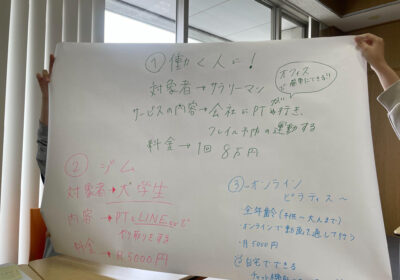 ① 働く人に!
対象者→サラリーマン
オフィスで簡単にできる!!
サービスの内容→会社にPTが行き、
フレイル予防の運動する
料金→1回 8万円
② ジム
対象者→大学生
内容→PTとLINEなどで
やり取りをする
料金→月5000円
③ オンライン
ピラティス〜
全年齢(子供〜大人まで)
オンラインで動画を通して行う
・月5000円
自宅でできる
チャット機能